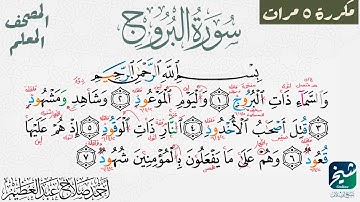 مكررة ٥ مرات
المصحف المعلم
سورة البروج
بِسْمِ اللَّهِ الرَّحْمَٰنِ الرَّحِيمِ
وَالسَّمَاءِ ذَاتِ الْبُرُوجِ ١ وَالْيَوْمِ الْمَوْعُودِ ٢ وَشَاهِدٍ وَمَشْهُودٍ
٣ قُتِلَ أَصْحَابُ الْأُخْدُودِ ٤ النَّارِ ذَاتِ الْوَقُودِ ٥ إِذْ هُمْ عَلَيْهَا
قُعُودٌ ٦ وَهُمْ عَلَىٰ مَا يَفْعَلُونَ بِالْمُؤْمِنِينَ شُهُودٌ ٧
أحمد صلاح عبد العظيم
شيخ